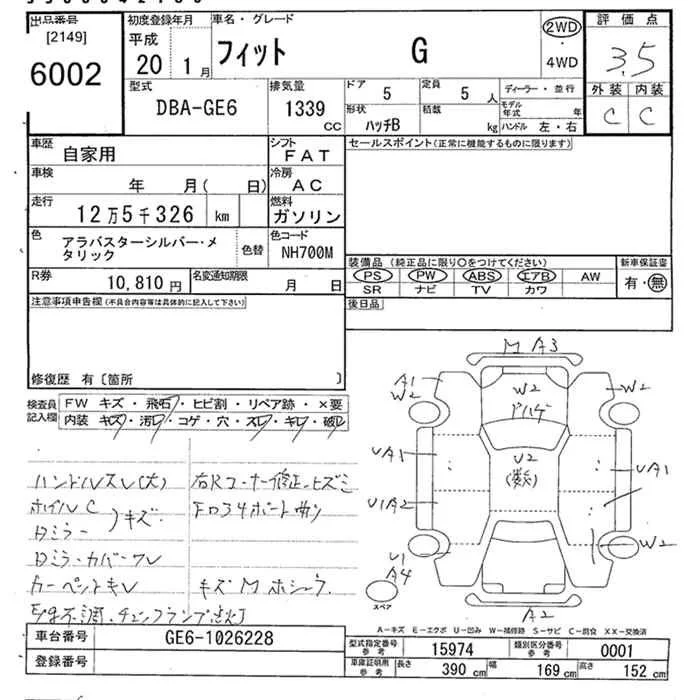 出品番号
[2149]
6002
初度登録年月
平成
20 1 月
車名・グレード
フィット G
2WD
・
4WD
評価点
3.5
外装 内装
C C
型式
DBA-GE6
排気量
1339
CC
ドア
5
定員
5 人
ディーラー・並行
形状
ハッチB
積載
kg
モデル年式 年
ハンドル 左・右
車歴
自家用
シフト
FAT
セールスポイント(正常に機能するものに限ります)
車検
年 月( 日)
冷房
AC
走行
12万5千326 km
燃料
ガソリン
色
アラバスターシルバー・メタリック
色替
色コード
NH700M
装備品 (純正品に限り○をつけてください)
PS PW ABS エアB AW
SR ナビ TV カワ
新車保証書
有・無
R券
10,810 円
名変通知期限
月 日
後日品
注意事項申告欄(不具合内容等は具体的に記入して下さい)
修復歴 有〔箇所 〕
検査員記入欄
FW キズ・飛石・ヒビ割・リペア跡・×要
内装 キズ・汚レ・コゲ・穴・スレ・キレ・破レ
ハンドルスレ(大)
ホイルC
Dミラー
キズ
Dミラーカバーワレ
カーペットキレ
右Rコーナー修正ヒズミ
キズM
チェックランプ点灯
M A3
A1
W2
W2
アハゲ
W2
UA1
U2
(数)
UA1
U1A2
U1
A4
W2
A2
スペア
A-キズ E-エクボ U-凹み W-補修跡 S-サビ C-腐食 XX-交換済
車台番号
GE6-1026228
登録番号
型式指定番号
参考
15974
類別区分番号
参考
0001
車庫証明用
参考
長さ
390 cm
幅
169 cm
高さ
152 cm